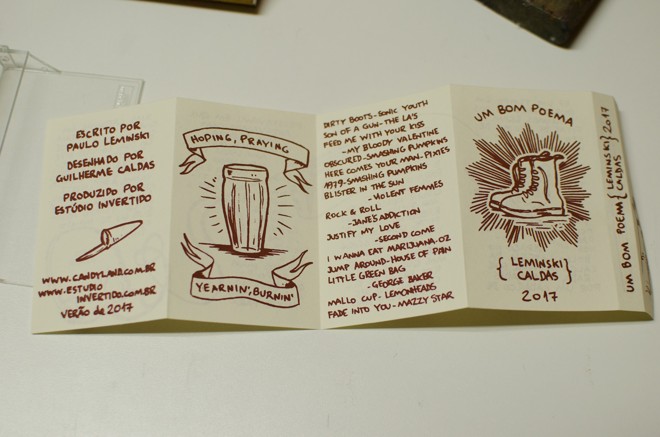 ESCRITO POR
PAULO LEMINSKI
DESENHADO POR
GUILHERME CALDAS
PRODUZIDO POR
ESTÚDIO INVERTIDO
WWW.CANDYLAND.COM.BR
WWW.ESTUDIO
INVERTIDO.COM.BR
VERÃO de 2017
HOPING, PRAYING
YEARNIN', BURNIN'
DIRTY BOOTS-SONIC YOUTH
SON OF A GUN-THE LA'S
FEED ME WITH YOUR KISS
-MY BLOODY VALENTINE
OBSCURED-SMASHING PUMPKINS
HERE COMES YOUR MAN-PIXIES
1979-SMASHING PUMPKINS
BLISTER IN THE SUN
-VIOLENT FEMMES
ROCK & ROLL
-JANE'S ADDICTION
JUSTIFY MY LOVE
-SECOND COME
I WANNA EAT MARIJUANA-OZ
JUMP AROUND-HOUSE OF PAIN
LITTLE GREEN BAG
-GEORGE BAKER
MALLO CUP-LEMONHEADS
FADE INTO YOU-MAZZY STAR
UM BOM POEMA
{LEMINSKI
CALDAS}
2017
UM BOM POEMA {LEMINSKI
CALDAS} 2017